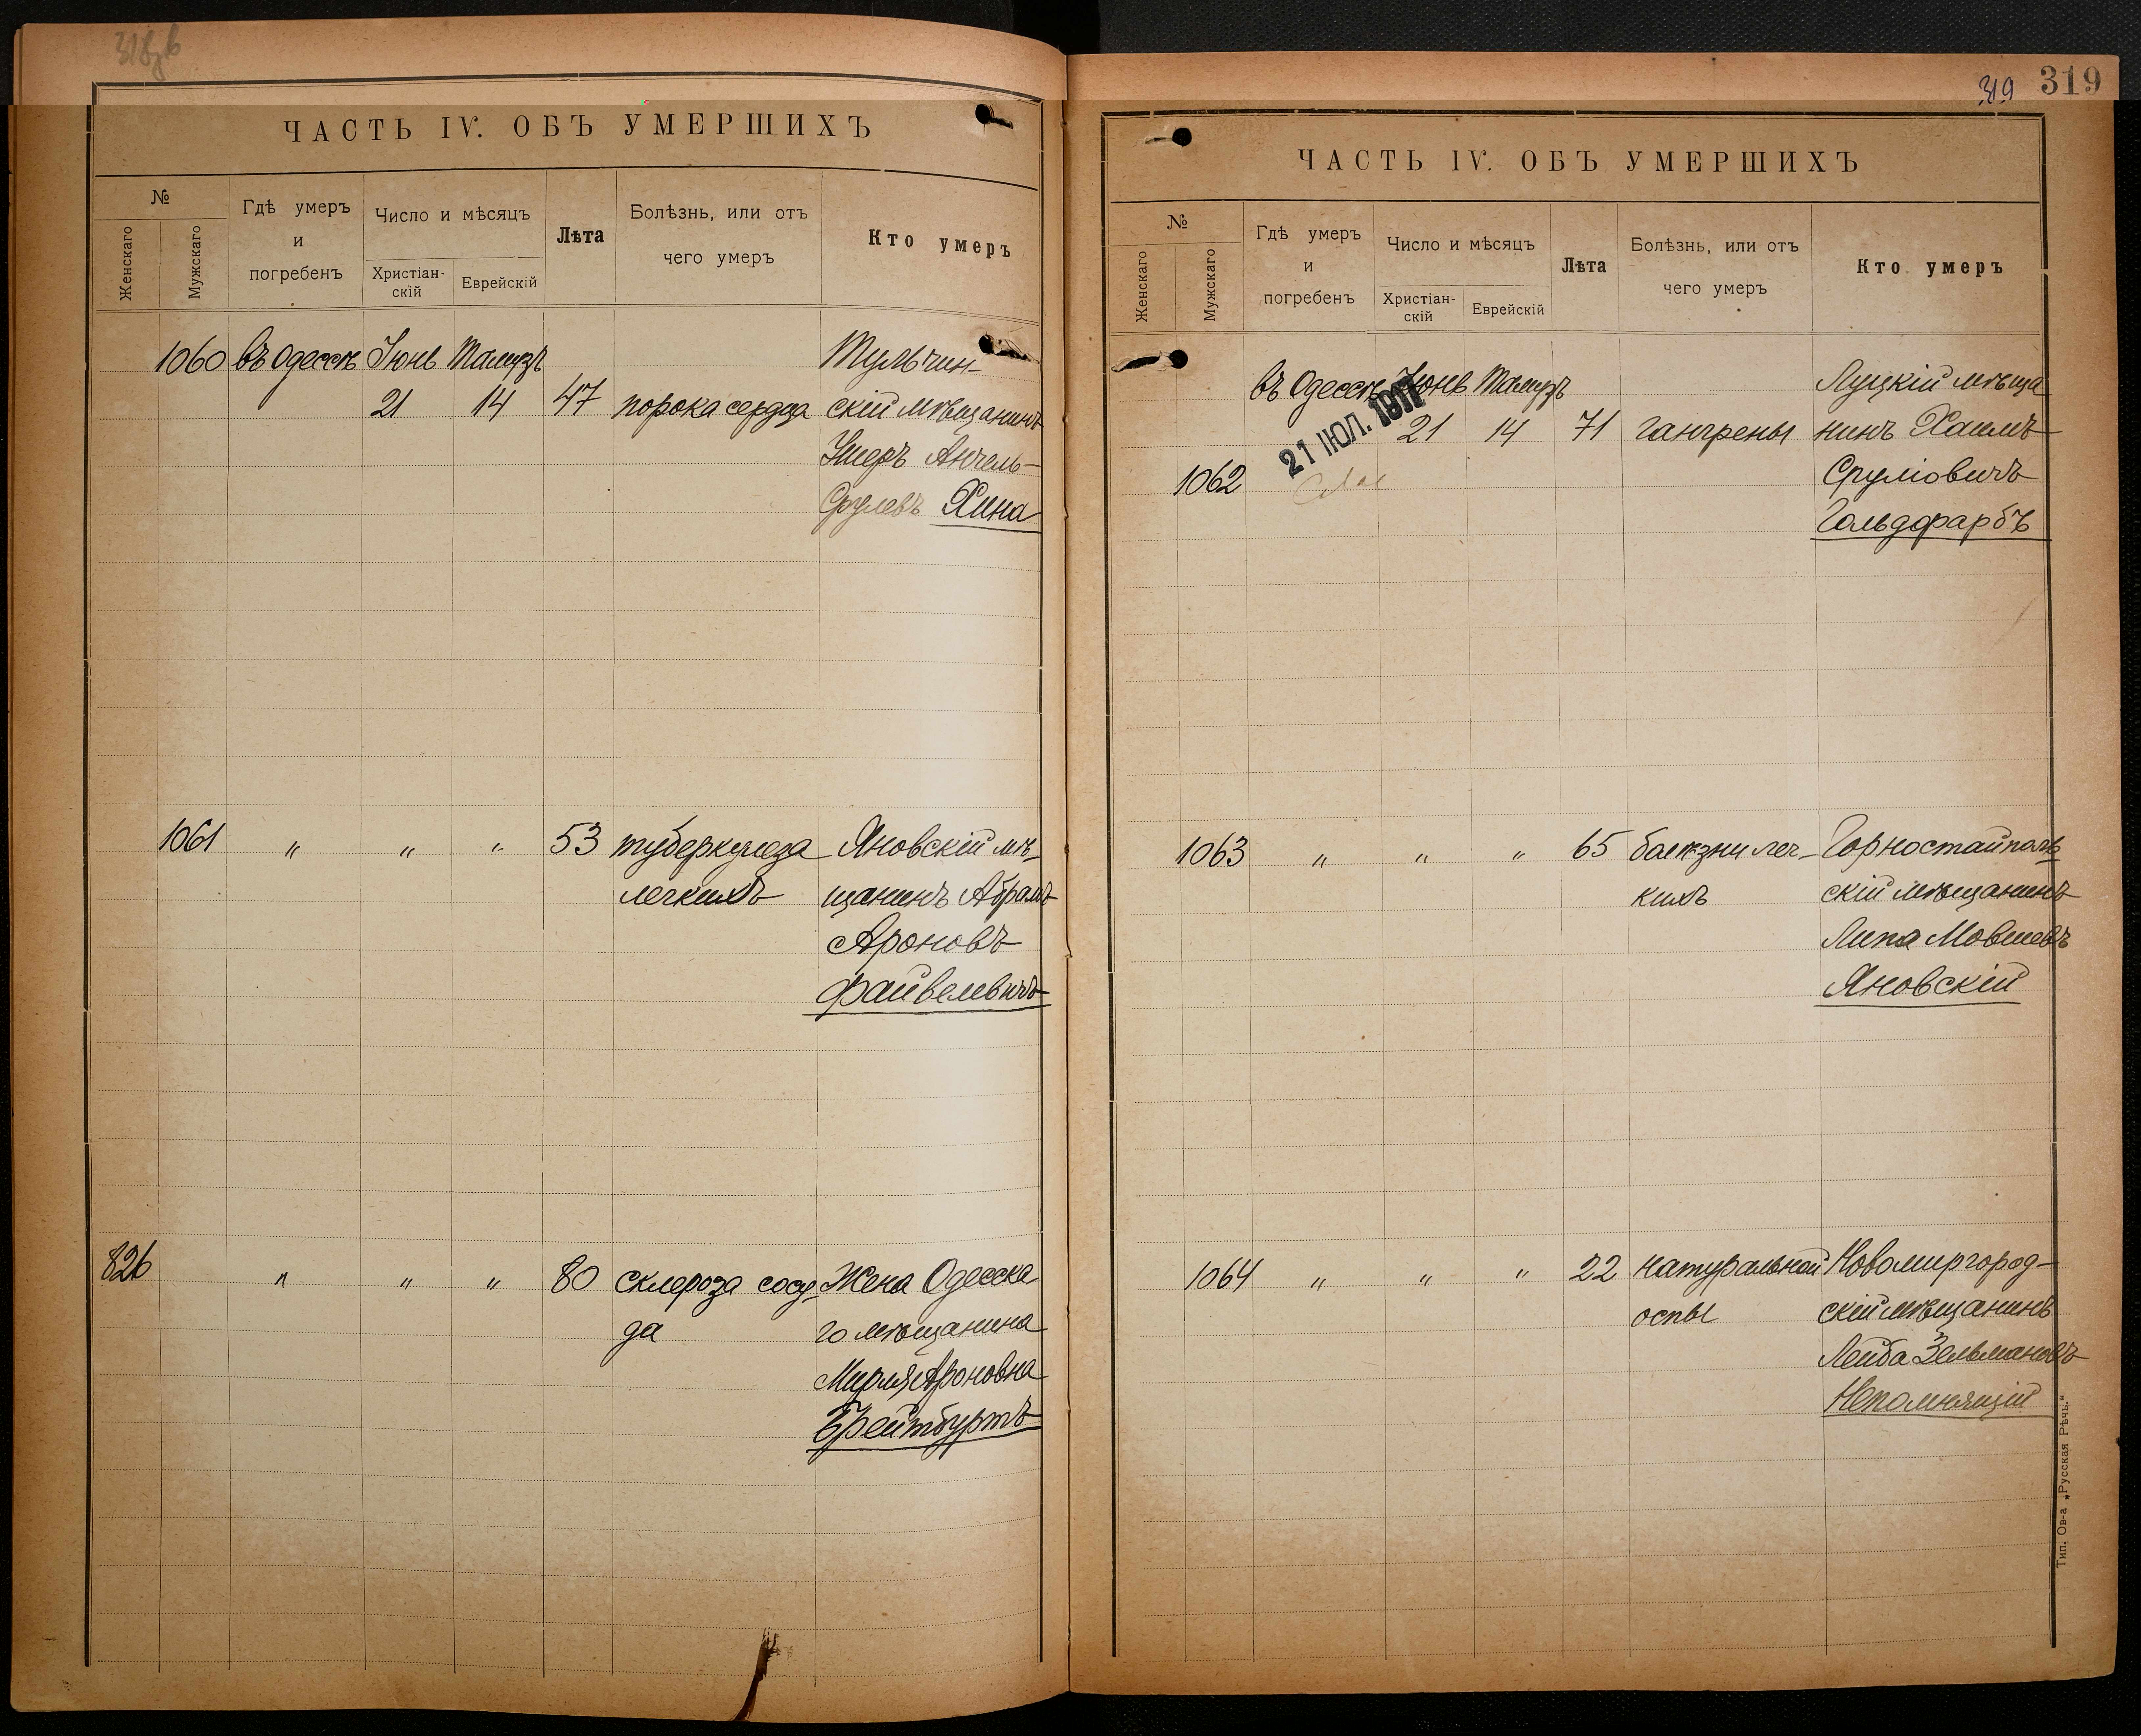 318 об
ЧАСТЬ IV. ОБЪ УМЕРШИХЪ
№
Женскаго
Мужскаго
Гдѣ умеръ
и
погребенъ
Число и мѣсяцъ
Христіан-
скій
Еврейскій
Лѣта
Болѣзнь, или отъ
чего умеръ
Кто умеръ
1060 въ Одессѣ Іюнь Тамузъ Тульчин-
21 14 47 порока сердца скій мѣщанинъ
Умеръ Анчель-
Срулевъ Хина
1061 " " " 53 туберкулеза Яновскій мѣ-
легкихъ щанинъ Абрамъ
Ароновъ
Файвелевичъ
826 " " " 80 склероза сосу- Жена Одесска
да го мѣщанина
Мирля Ароновна
Брейтбуртъ
319 319
ЧАСТЬ IV. ОБЪ УМЕРШИХЪ
№
Женскаго
Мужскаго
Гдѣ умеръ
и
погребенъ
Число и мѣсяцъ
Христіан-
скій
Еврейскій
Лѣта
Болѣзнь, или отъ
чего умеръ
Кто умеръ
въ Одессѣ Іюнь Тамузъ Луцкій мѣща
21 14 71 гангрены нинъ Хаимъ
21 ІЮЛ. 1917
1062 Сруліовичъ
Гольдфарбъ
1063 " " " 65 болѣзни лег- Горностайполь
кихъ скій мѣщанинъ
Липа Мовшевъ
Яновскій
1064 " " " 22 натуральной Новомиргород-
оспы скій мѣщанинъ
Лейба Зельмановъ
Непомнящій
Тип. Ов-а „Русская Рѣчь."